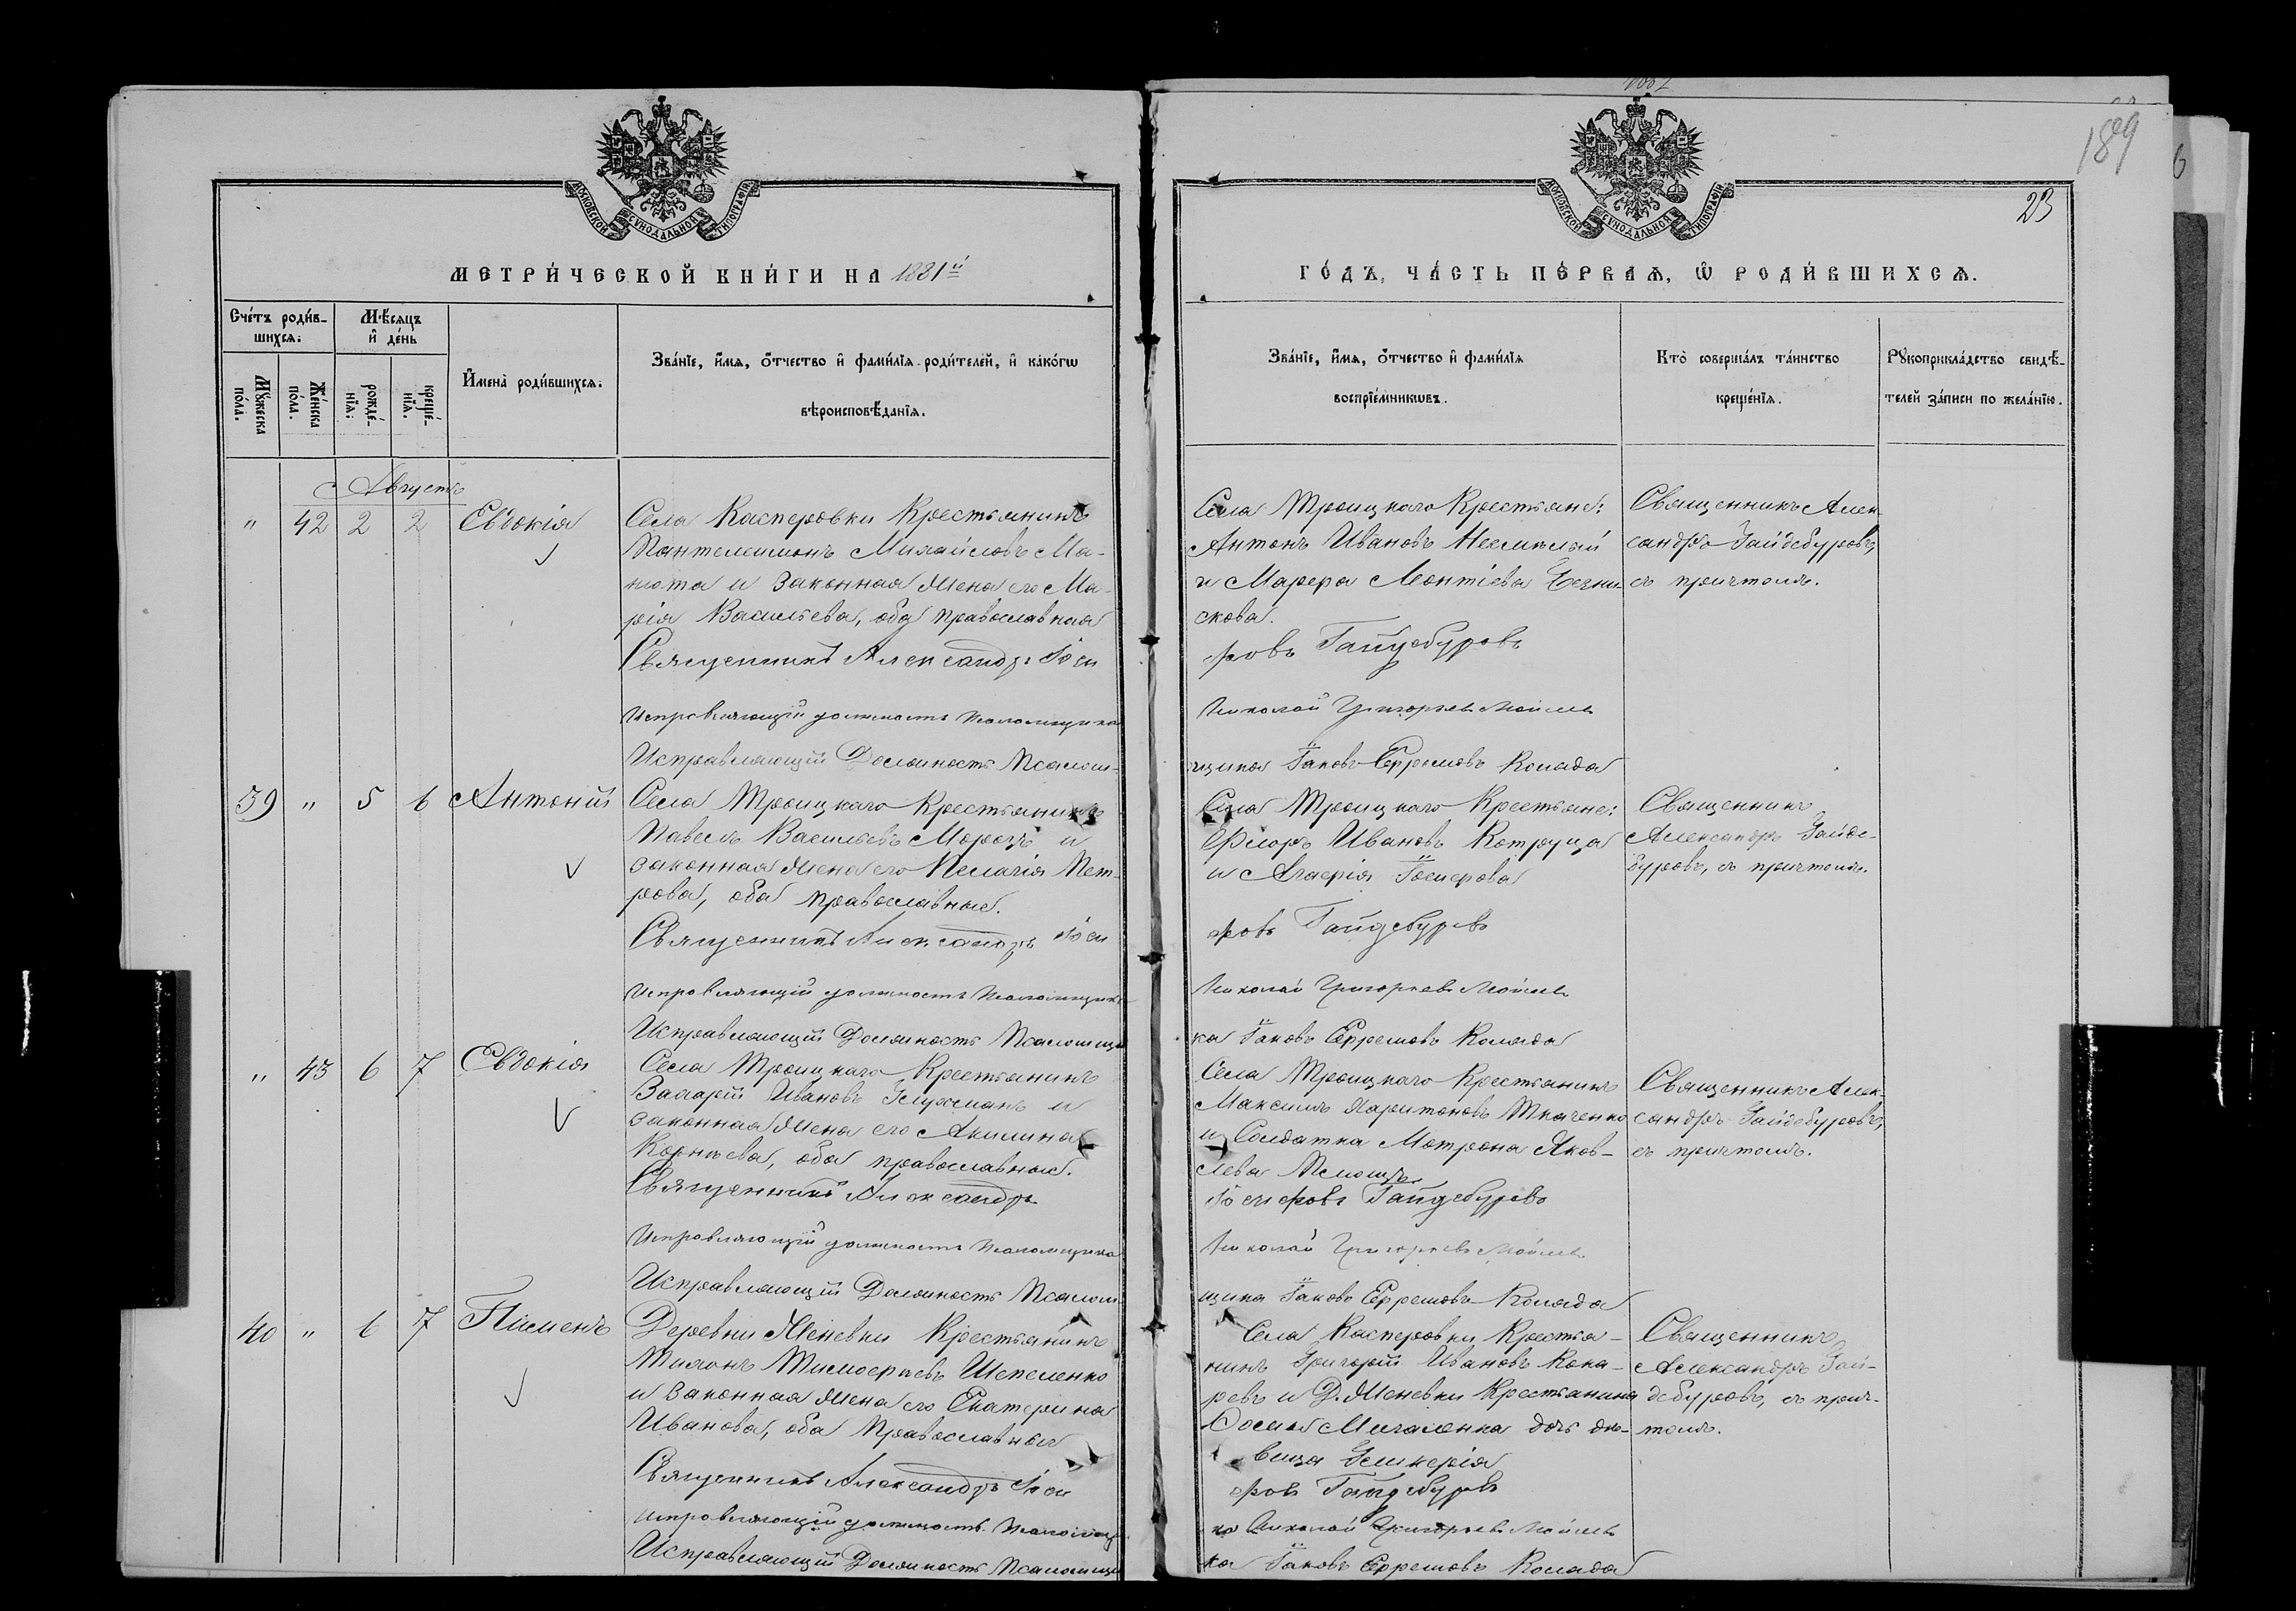 189
23
МОСКОВСКОЙ СУНОДАЛЬНОЙ ТИПОГРАФІИ
МЕТРИ́ЧЕСКОЙ КНИ́ГИ НА 1881й
Сче́тъ роди́в-
шихся:
Мѣ́сяцъ
и де́нь
Мꙋ́жеска
по́ла.
Же́нска
по́ла.
рожде́-
нїѧ:
креще́-
нїѧ.
И҆мена̀ роди́вшихсѧ.
Зва́нїе, и҆́мѧ, ѻ҆́тчество и҆ фами́лїѧ роди́телей, и҆ како́гѡ
вѣроисповѣ́данїѧ.
Августъ
" 42 2 2 Евдокія
Села Касперовки Крестьянинъ
Пантелеимонъ Михайловъ Ма-
нюта и законная жена его Ма-
рія Васильева, оба православная
Священникъ Александръ Іоси
Исправляющій должность псаломщика
Исправляющій Должность Псалом-
39 " 5 6 Антоній
Села Троицкаго Крестьянинъ
Павелъ Васильевъ Морозъ и
законная жена его Пелагія Пет-
рова, оба православные.
Священникъ Александръ Іоси
Исправляющій должность псаломщика
Исправляющій Должность Псаломщи
" 43 6 7 Евдокія
Села Троицкаго Крестьянинъ
Захарій Ивановъ и
законная жена его Акилина
Корнѣева, оба православные.
Священникъ Александръ
Исправляющій должность псаломщика
Исправляющій Должность Псалом
40 " 6 7 Пименъ
Деревни Женевки Крестьянинъ
Тихонъ Тимофеевъ Шепеленко
и законная жена его Екатерина
Иванова, оба Православные
Священникъ Александръ Іоси
Исправляющій должность псаломщи
Исправляющій Должность Псаломщи
МОСКОВСКОЙ СУНОДАЛЬНОЙ ТИПОГРАФІИ
ГО́ДЪ, ЧА́СТЬ ПЕ́РВАѦ, Ѽ РОДИ́ВШИХСѦ.
Зва́нїе, и҆́мѧ, ѻ҆́тчество и҆ фами́лїѧ
воспрїе́мникѡвъ.
Кто̀ соверша́лъ та́инство
креще́нїѧ.
Рꙋкоприкла́дство свидѣ́-
телей за́писи по жела́нїю.
Села Троицкаго Крестьяне:
Антонъ Ивановъ
и Марфа Леонтіева
скова.
фовъ Гайдебуровъ
Николай Григорьевъ
щика Іаковъ Ефремовъ Коляда
Священникъ Алек-
сандръ Гайдебуровъ,
съ причтомъ.
Села Троицкаго Крестьяне:
Флоръ Ивановъ Котруца
и Агафія Іосифова
фовъ Гайдебуровъ
Николай Григорьевъ
ка Іаковъ Ефремовъ Коляда
Священникъ
Александръ Гайде-
буровъ, съ причтомъ.
Села Троицкаго Крестьянинъ
Максимъ Харитоновъ Ткаченко
и Солдатка Мотрона Яков-
лева
Іосифовъ Гайдебуровъ
Николай Григорьевъ
щика Іаковъ Ефремовъ Коляда
Священникъ Алек-
сандръ Гайдебуровъ,
съ причтомъ.
Села Касперовки Крестья-
нинъ Григорій Ивановъ Кока-
ревъ и Д. Женевки Крестьянина
дочь дѣ-
вица Гликерія
фовъ Гайдебуровъ
ка Николай Григорьевъ
ка Іаковъ Ефремовъ Коляда
Священникъ
Александръ Гай-
дебуровъ, съ прич-
томъ.